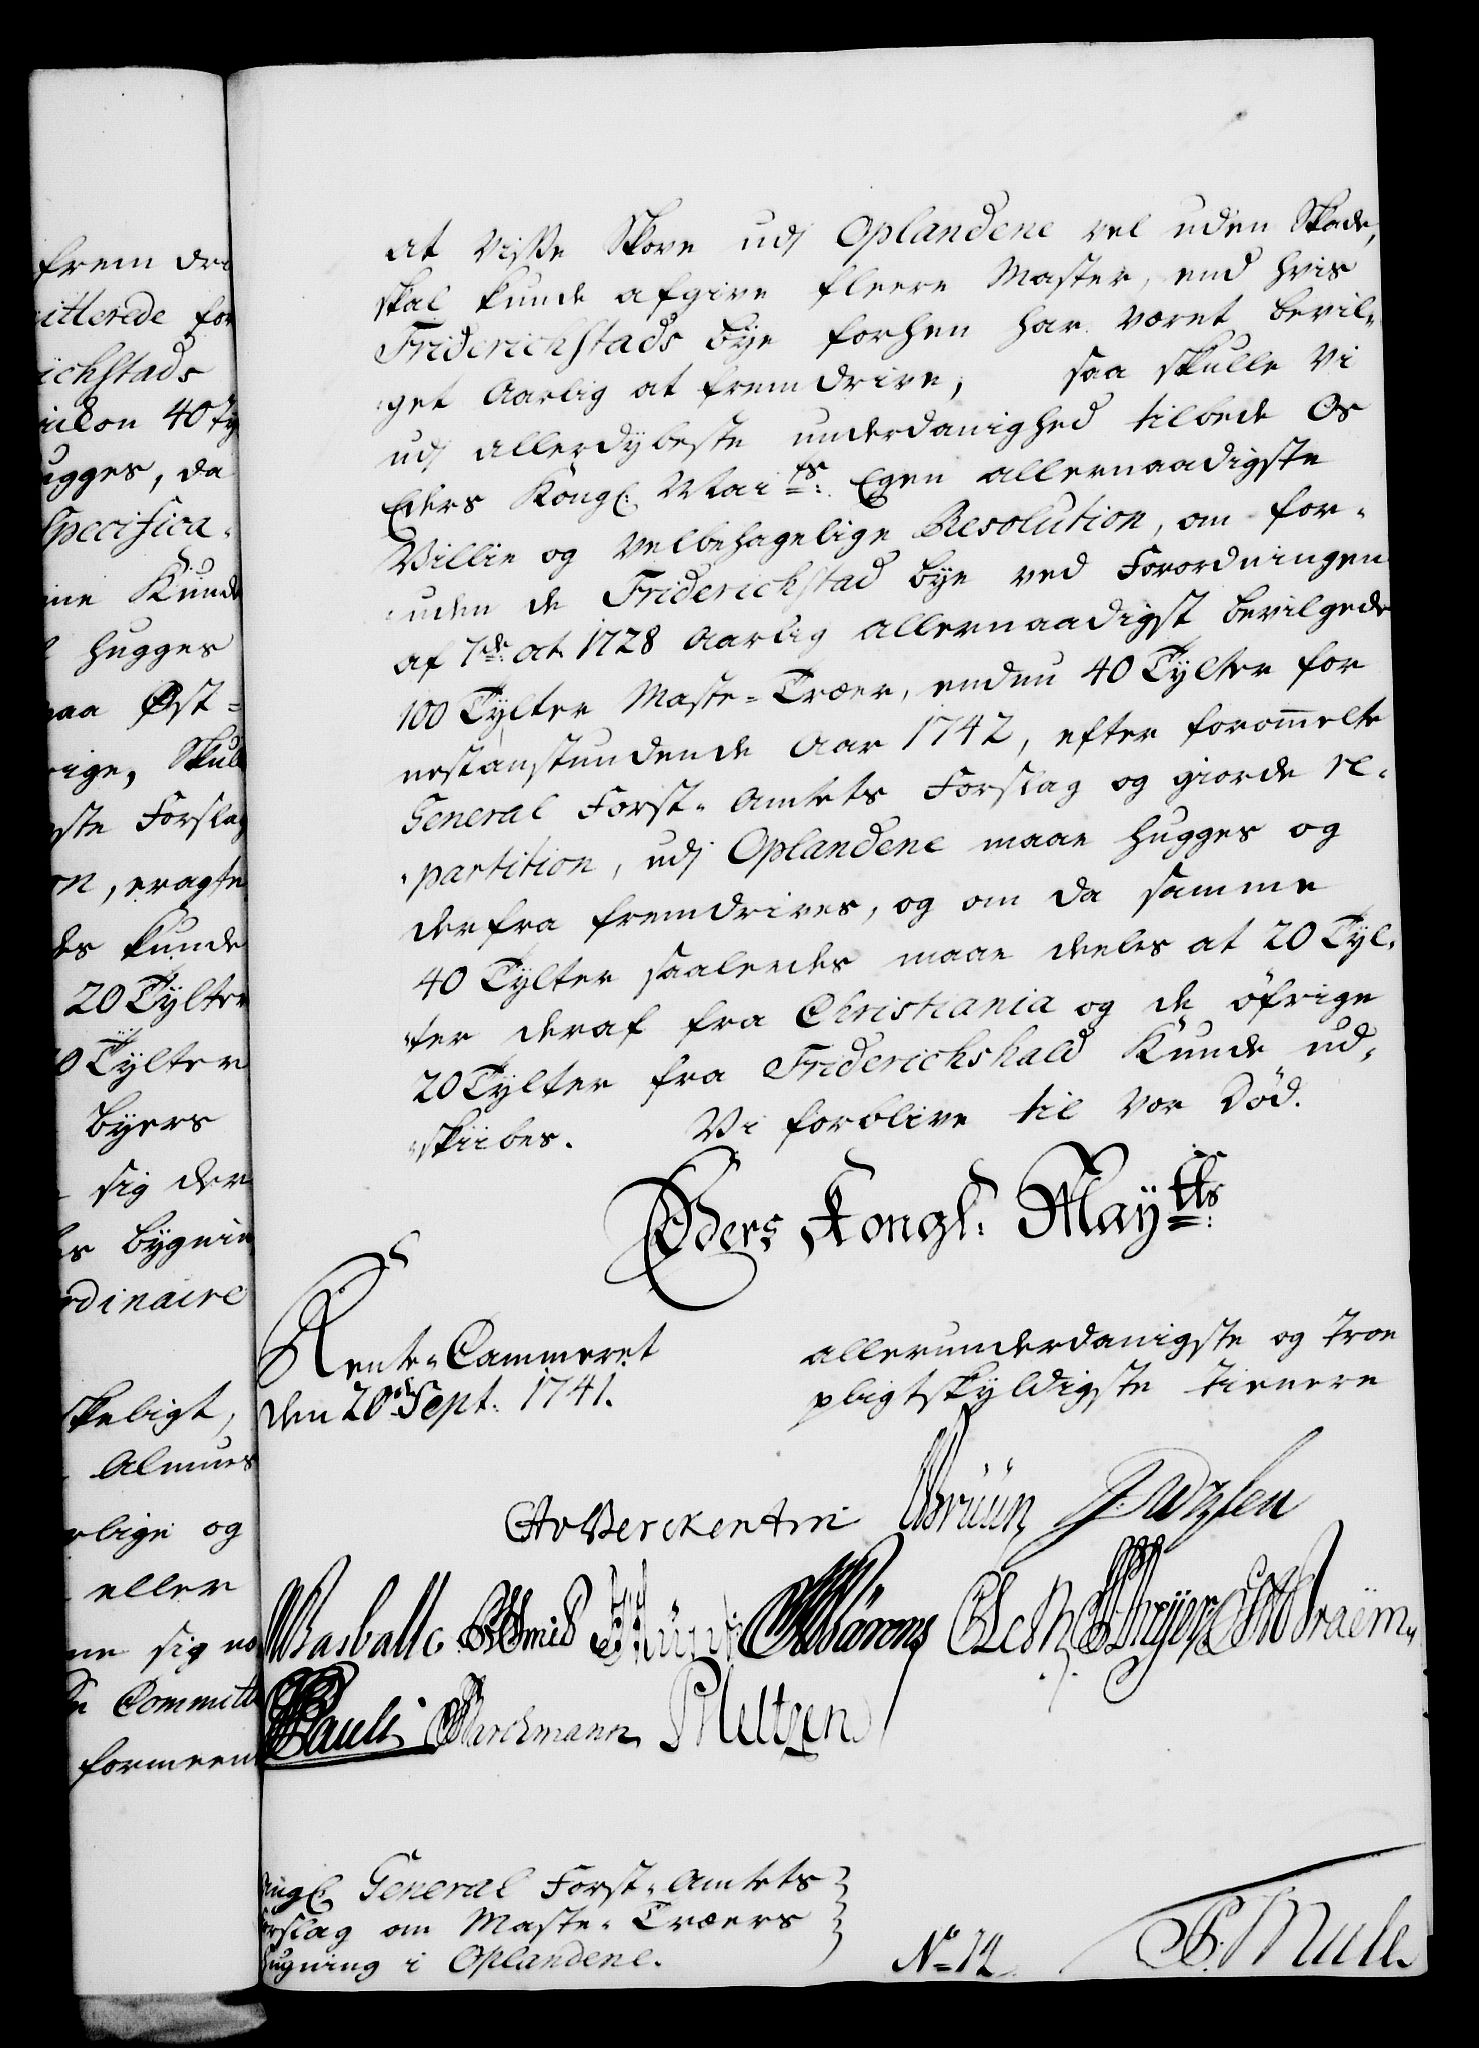 frem dri
itterede for
ichstads
40 Ty
ugges, da
Specifica-
ine Kunde
hugges
paa Øst-
rige, Skulle
ste Forslag
on, eragte
des kunde
20 Tylter
0 Tylter
byers
sig der
bygnin
rdinaire
skeligt,
Almues
rlige og
eller
ne sig no
Committe
formeene
at visse Skove udj Oplandene vel uden Skade,
skal kunde afgive fleere Master, end hvis
Friderichstads bye forhen har været bevil-
-get Aarlig at fremdrive; saa skulle Vi
udj allerdybeste underdanighed tilbede Os
Eders Kongl: Maits: Egen allernaadigste
Villie og Velbehagelige Resolution, om for-
-uden de Friderichstad bye ved Forordningen
af 7de 1728 Aarlig allernaadigst bevilgede
100 Tylter Maste-Træer, endnu 40 Tylter for
nestanstundende Aar 1742, efter forommelte
General Forst-Amtets Forslag og giorde re-
-partition, udj Oplandene maae hugges og
derfra fremdrives, og om da samme
40 Tylter saaledes maae deeles at 20 Tyl-
-ter deraf fra Christiania og de øfrige
20 Tylter fra Friderichshald Kunde ud-
-skiibes. Vi forblive til vor Død.
Eders Kongl: Maytts:
Rente-Cammeret
den 20de Sept. 1741.
allerunderdanigste og troe
pligtskyldigste tienere
CAvBerckentin Bruün
Basballe Braëm
Pauli Barchmann PMeltzen
ngl. General Forst-Amtets
orslag om Maste-Træers
hugning i Oplandene.
No 12
P. Mule